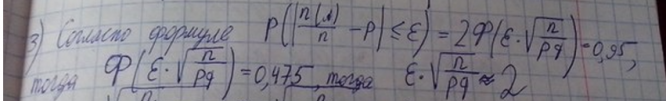 3) Согласно формуле P(|n(A)/n − P| ≤ ε) = 2Ф(ε·√(n/pq)) = 0,95,
тогда Ф(ε·√(n/pq)) = 0,475, тогда ε·√(n/pq) ≈ 2